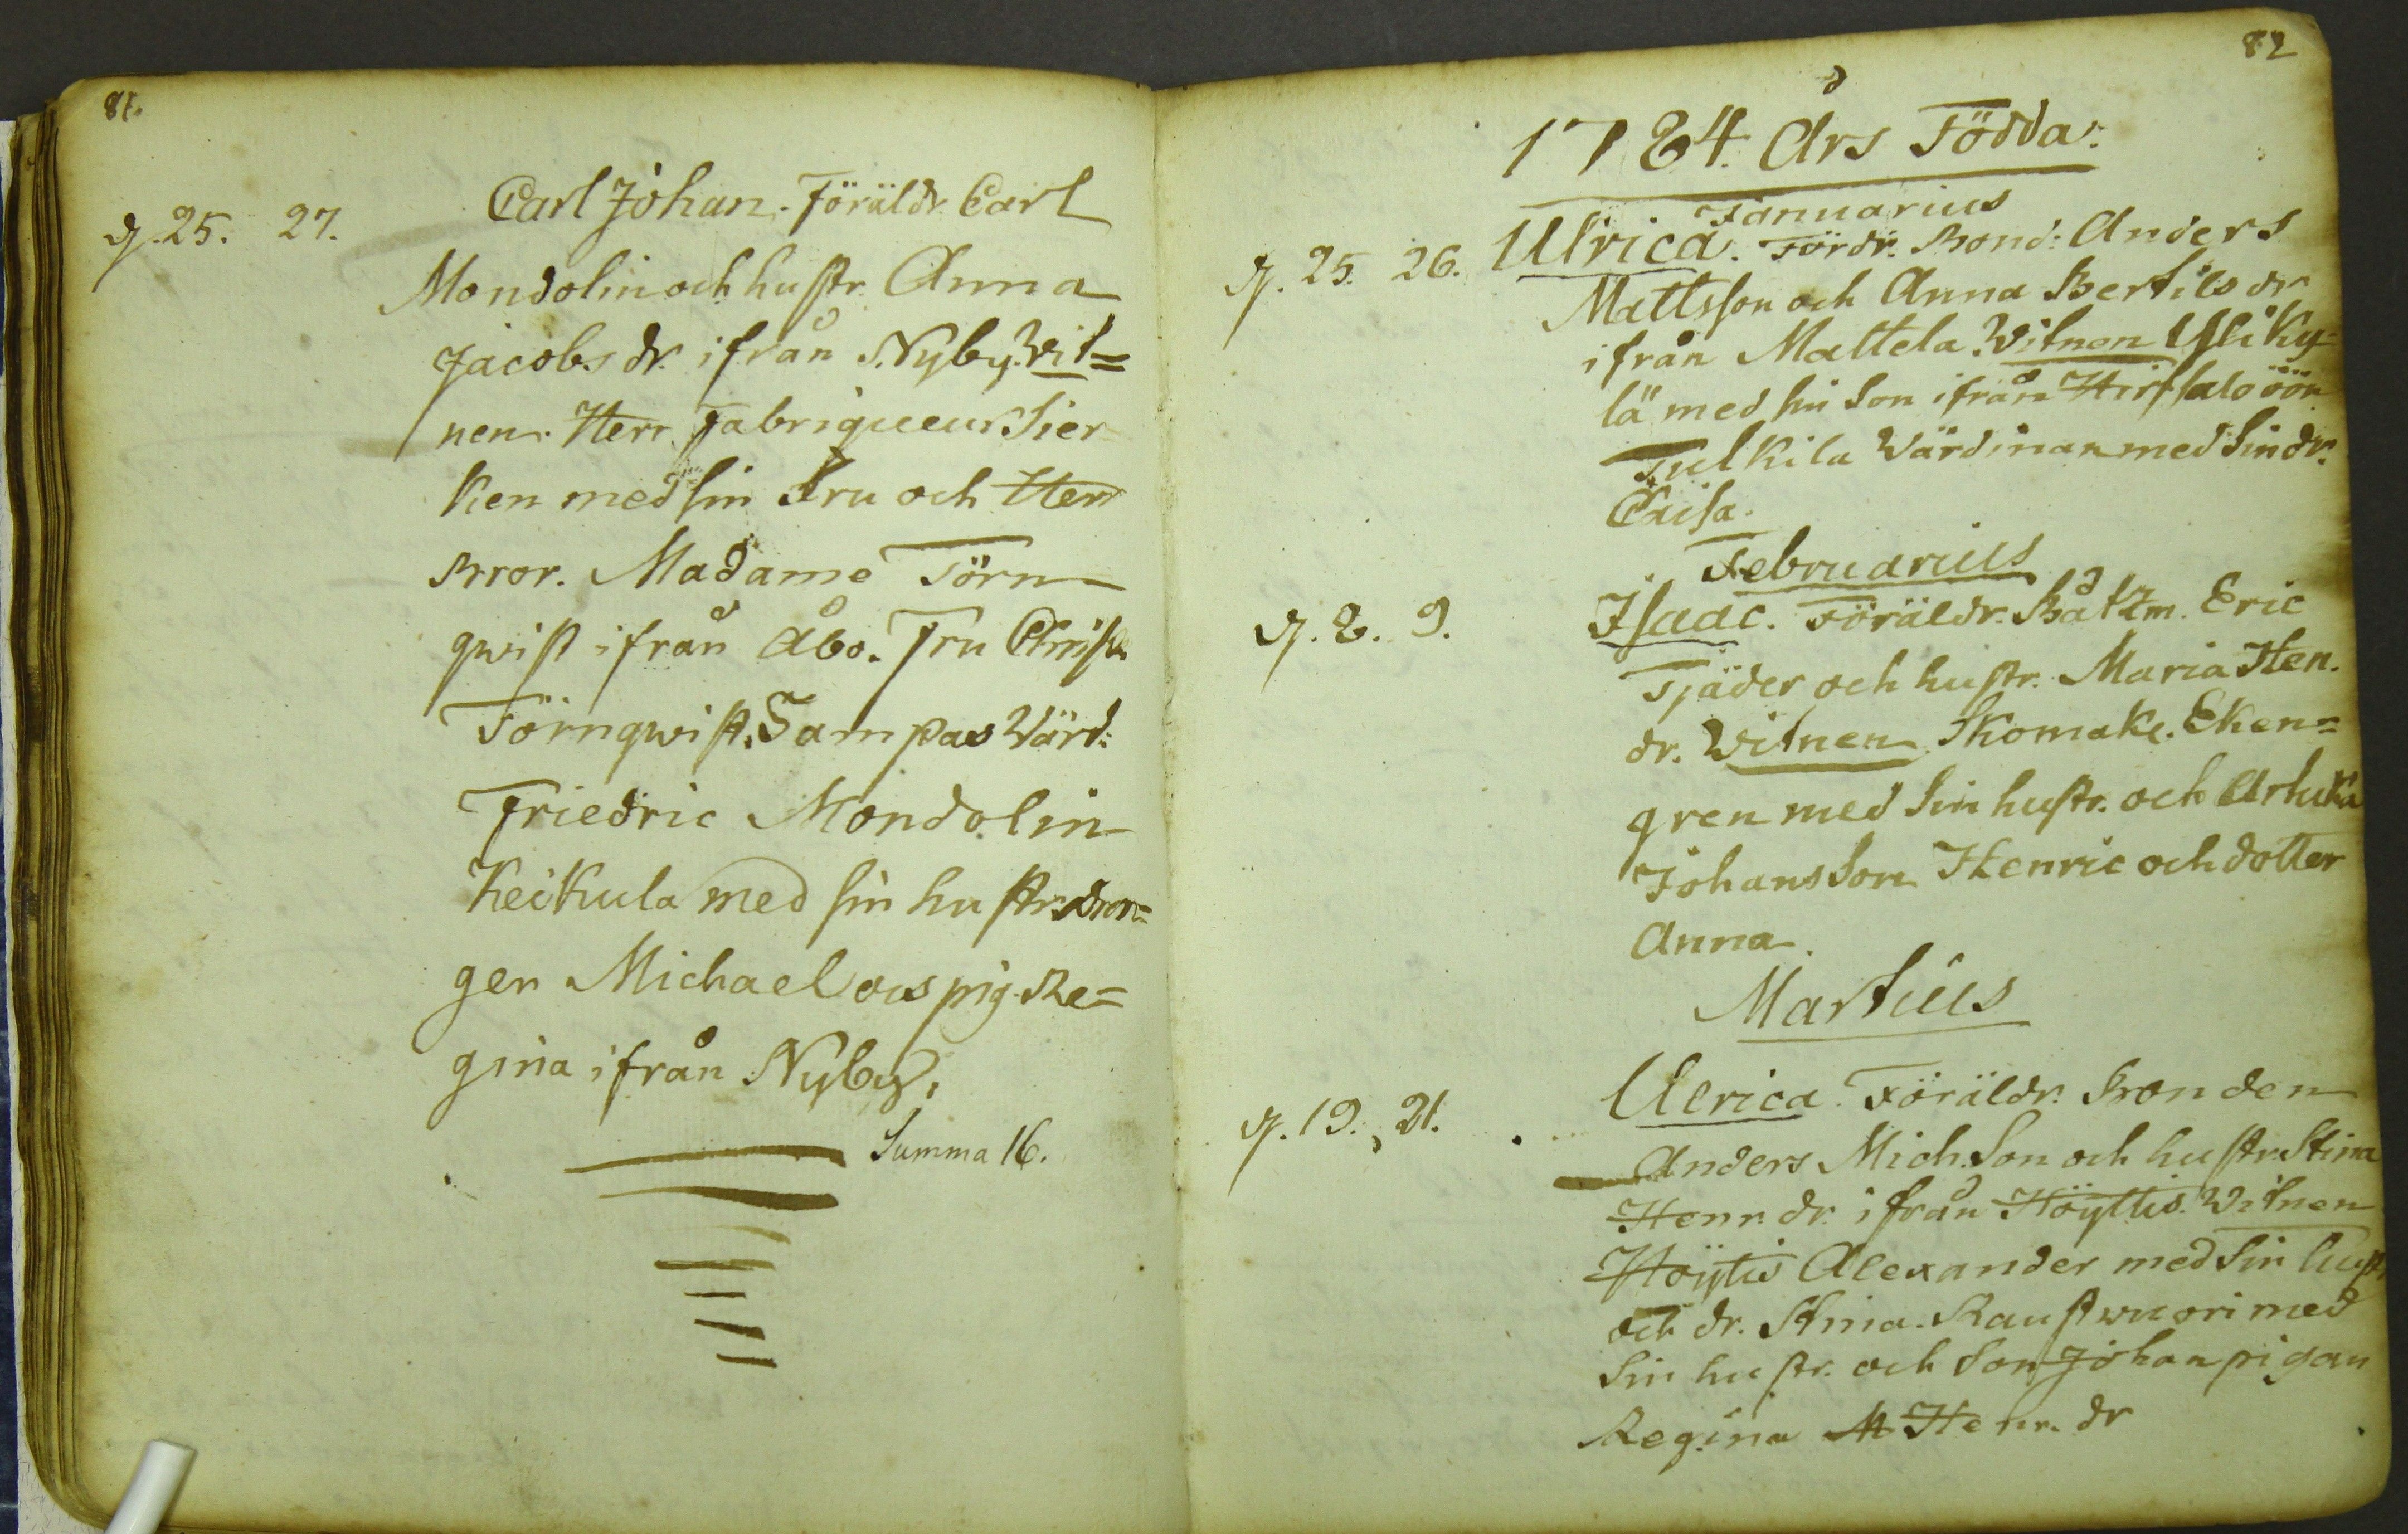 81.
d. 25. 27. Carl Johan. Föräldr. Carl
Mondolin och hustr. Anna
Jacobs dr. ifrån Nyby. Wit=
nen. Herr Fabriqueur Sier
ken med sin Fru och Herr
Bror. Madame Törn
qwist ifrån Åbo. Fru
Törnqwist. Sampas Wärd.
Friedric Mondolin
Keikula med sin hustr. Drän=
gen Michael och pig. Re=
gina ifrån Nyby.
Summa 16.
82
1784. Års Födda.
Januarius
d. 25. 26. Ulrica. Fördr. Bond: Anders
Mattsson och Anna Bertils dr
ifrån Mattela. Witnen Yli Ky=
lä med sin Son ifrån Hirssalo öön
Tulkila Wärdinan med Sin dr.
Caisa.
Februarius
d. 8. 9. Isaac. Föräldr. Båtzm. Eric
Tjäder och hustr. Maria Hen.
dr. Witnen Skomak. Eken=
gren med Sin hustr. och Artuka
Johans Son Henric och dotter
Anna.
Martius
d. 19. 21. Ulrica. Föräldr. Bonden
Anders Mich. Son och hustr. Stina
Henr. dr. ifrån Höyttis. Witnen
Höytis Alexander med Sin hustr
och dr. Stina. Raustwuori med
Sin hustr. och Son Johan pigan
Regina Henr. dr